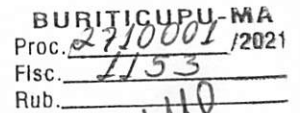 BURITICUPU-MA
Proc. 2710001 /2021
Flsc. 1153
Rub.